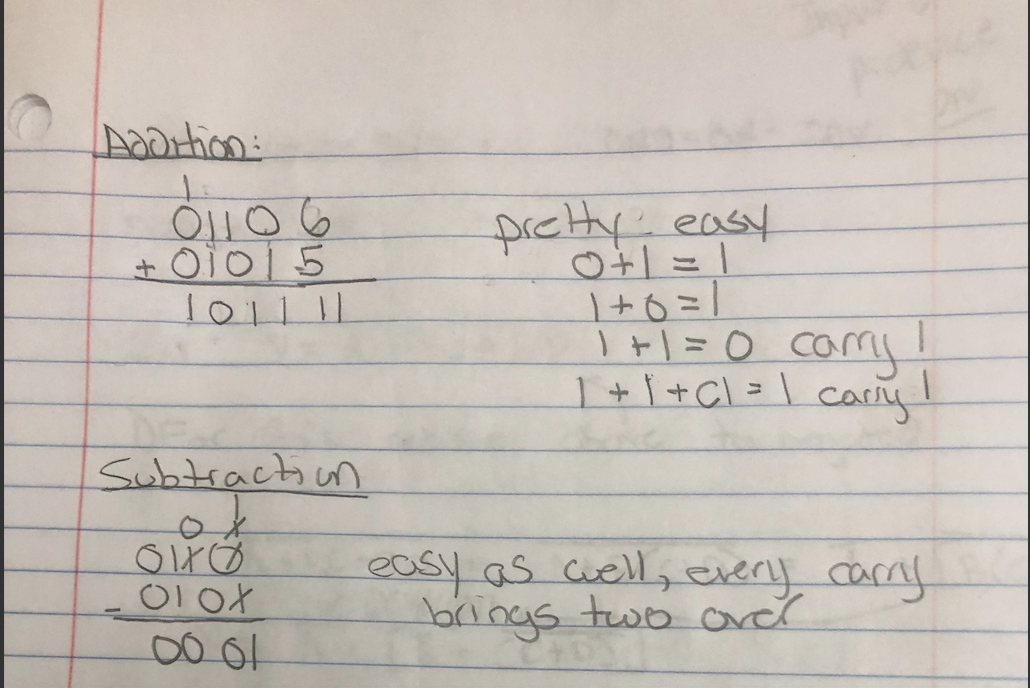 Addition:
1
0110 6
+ 0101 5
1011 11
pretty easy
0+1 = 1
1+0=1
1+1=0 carry 1
1+1+c1=1 carry 1
Subtraction
1
0 x
01x0
- 010x
0001
easy as well, every carry
brings two over